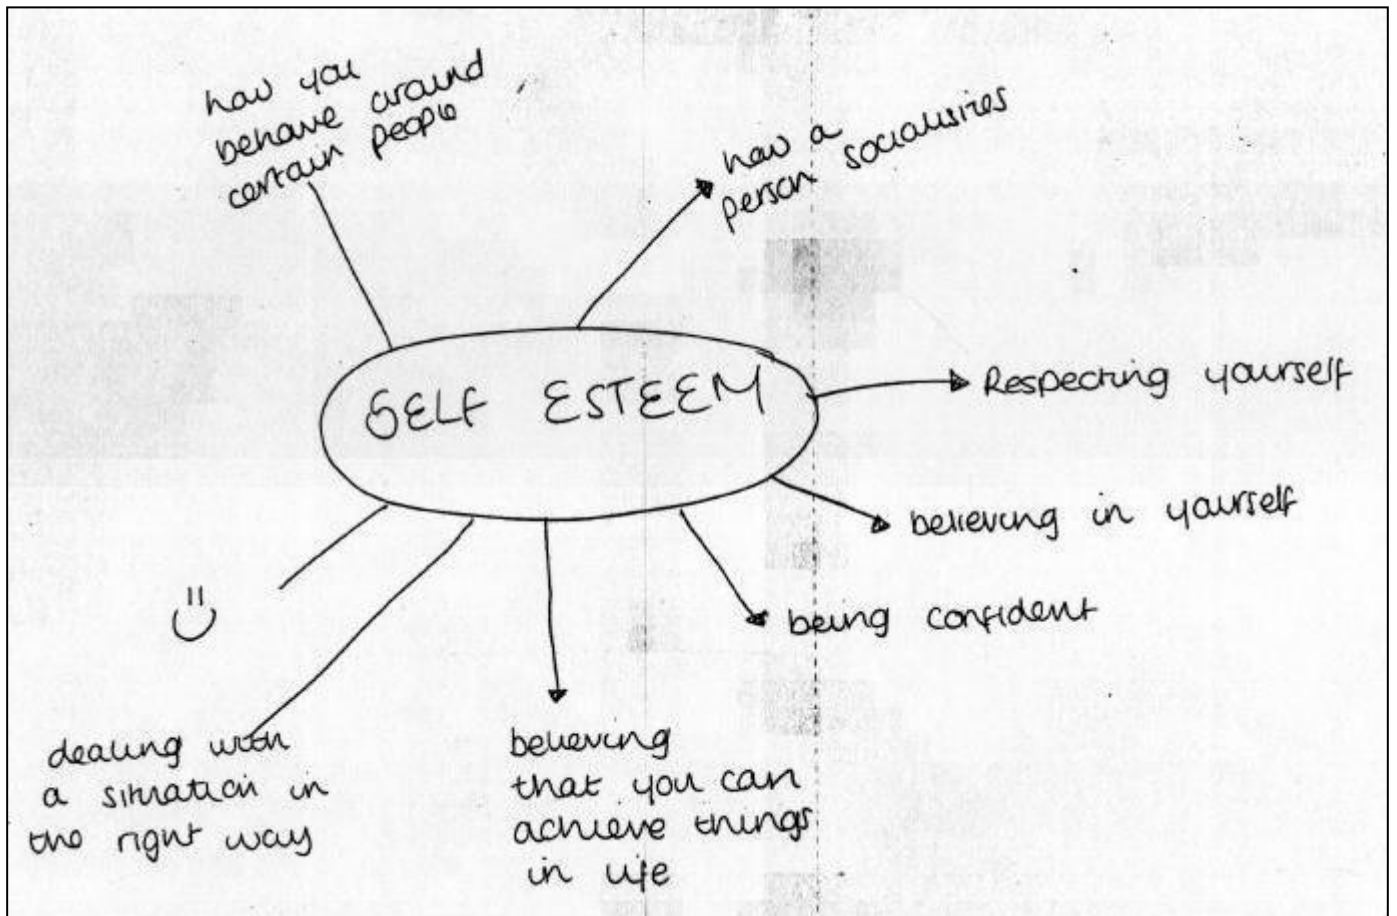 how you
behave around
certain people
how a
person socialisizes
SELF ESTEEM
Respecting yourself
believing in yourself
being confident
believing
that you can
achieve things
in life
dealing with
a situation in
the right way